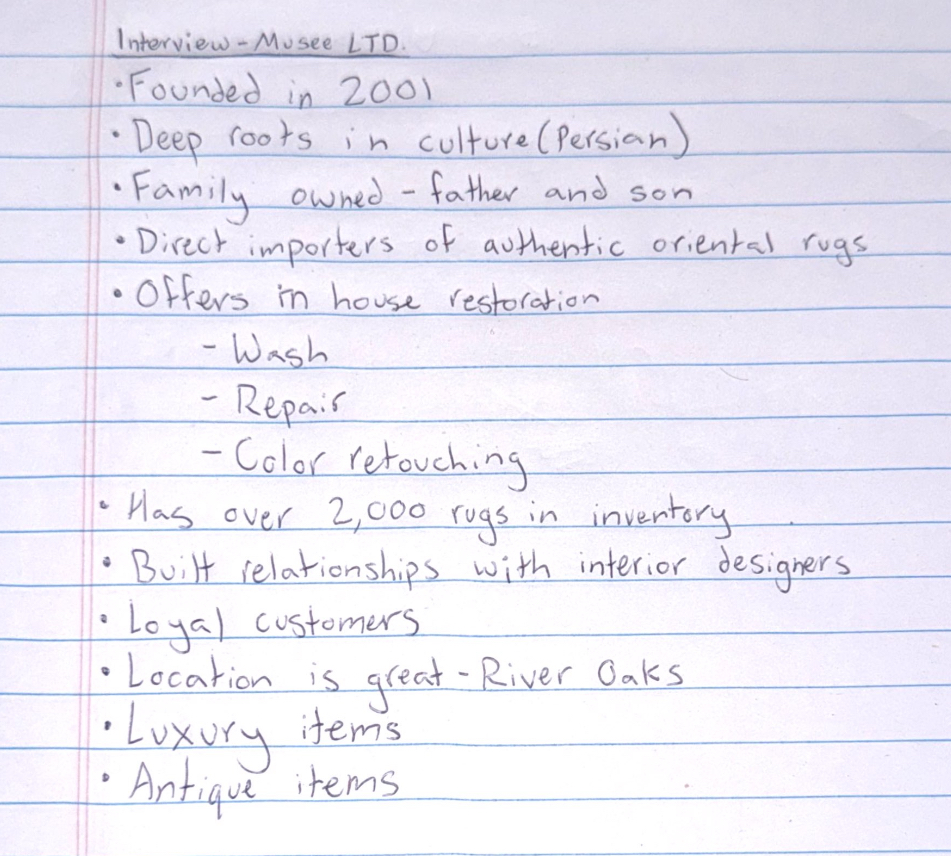 Interview - Musee LTD.
• Founded in 2001
• Deep roots in culture (Persian)
• Family owned - father and son
• Direct importers of authentic oriental rugs
• Offers in house restoration
- Wash
- Repair
- Color retouching
• Has over 2,000 rugs in inventory
• Built relationships with interior designers
• Loyal customers
• Location is great - River Oaks
• Luxury items
• Antique items